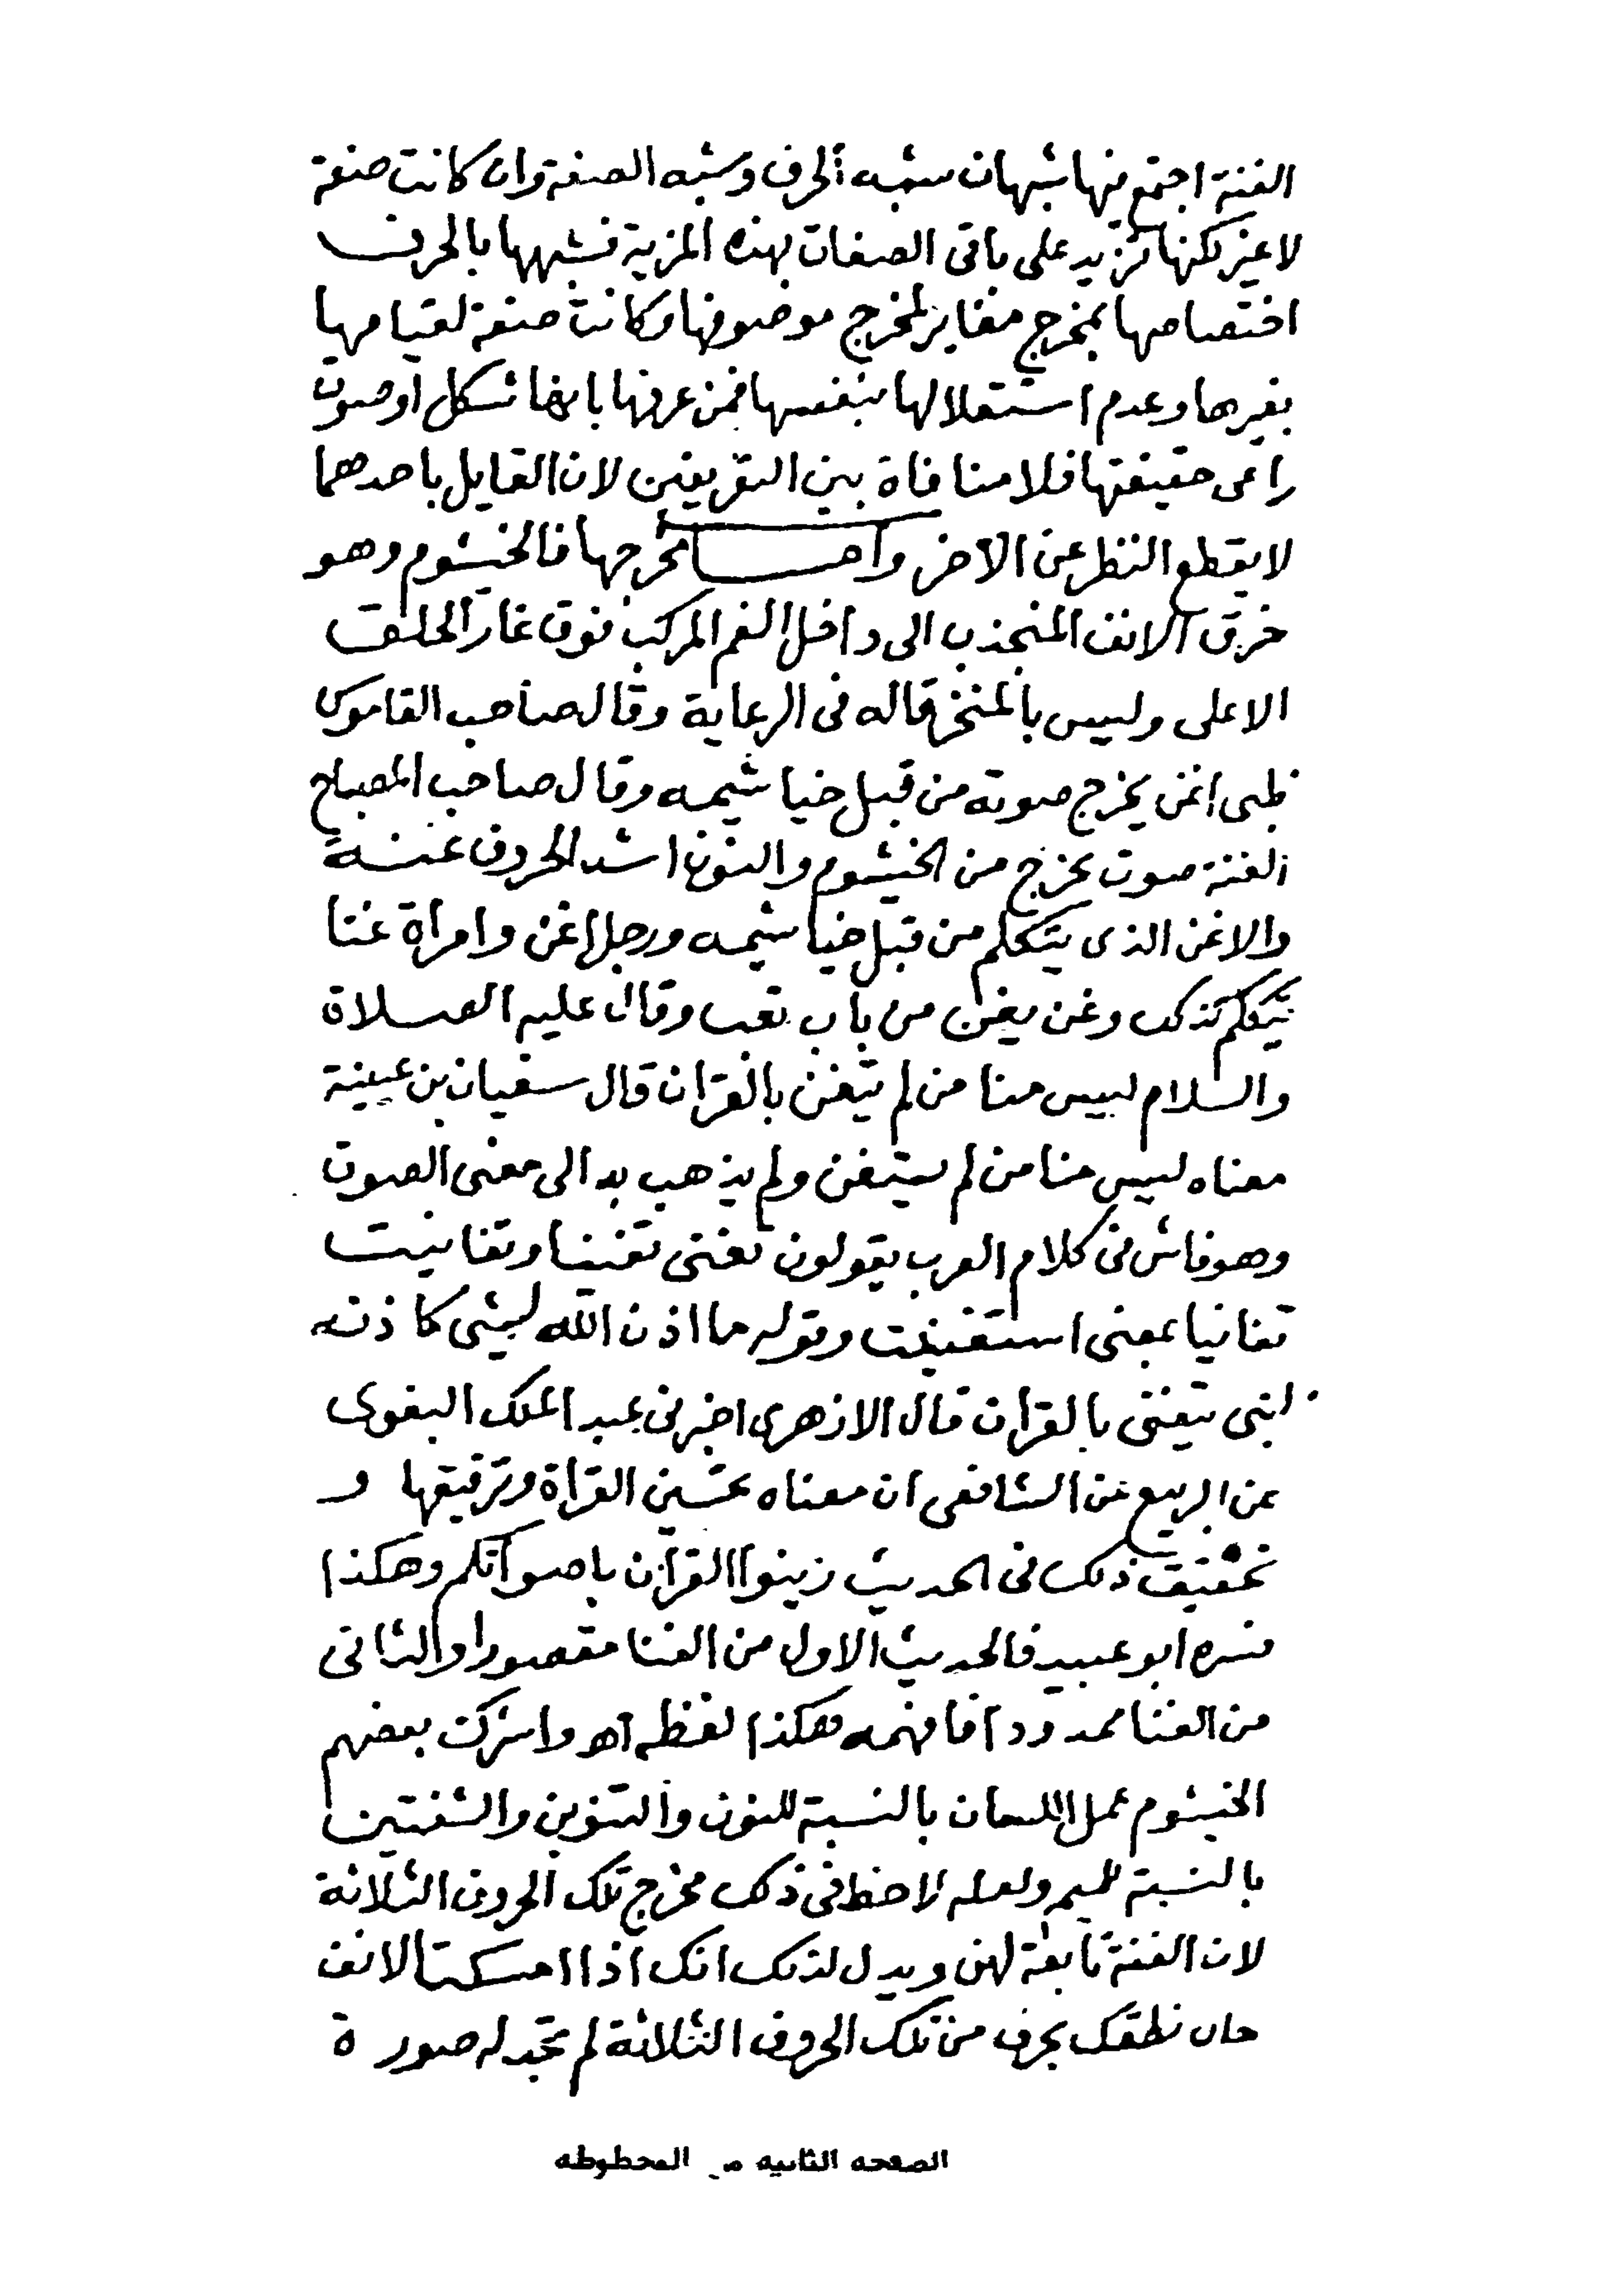 الغنة اجتمع فيها شبهان شبه الحرف وشبه الصفة وان كانت صفة
لاغير لكنها تزيد على باقى الصفات بهذه المزية فشبهها بالحرف
اختصاصها بمخرج مغاير لمخرج موصوفها وكانت صفة لقيامها
بغيرها وعدم استقلالها بنفسها فمن عرفها بانها شكل اوصوت
راعى حقيقتها فلا منافاة بين التعريفين لان القايل باحدهما
لا يقطع النظر عن الاخر واما مخرجها فالخيشوم وهو
خرق الانف المنجذب الى داخل الفم المركب فوق غار الحلق
الاعلى وليس بالمنخر قاله فى الرعاية وقال صاحب القاموس
ظبى اغن يخرج صوته من قبل خياشيمه وقال صاحب المصباح
الغنة صوت يخرج من الخيشوم والنون اشد الحروف غنة
والاغن الذى يتكلم من قبل خياشيمه ورجل اغن وامراة غنا
تتكلم كذلك وغن يغن من باب تعب وقال عليه الصلاة
والسلام ليس منا من لم يتغن بالقران قال سفيان بن عيينة
معناه ليس منا من لم يستغن ولم يذهب به الى معنى الصوت
وهو فاش فى كلام العرب يقولون تغنى تغنيا وتغانيت
تغانيا بمعنى استغنيت وقوله ما اذن الله لشى كاذنه
لنبى يتغنى بالقران قال الازهرى اخبرنى عبد الملك البغوى
عن الربيع عن الشافعى ان معناه تحسين القراة وترقيقها و
تحقيق ذلك فى الحديث زينوا القران باصواتكم وهكذا
فسره ابو عبيد فالحديث الاول من الغنا مقصورا والثانى
من الغنا ممدودا فافهمه هكذا لفظه اه واشرك بعضهم
الخيشوم عمل اللسان بالنسبة للنون والتنوين والشفتين
بالنسبة للميم ولعله لاحظ فى ذلك مخرج تلك الحروف الثلاثة
لان الغنة تابعة لهن ويدل لذلك انك اذا امسكت الانف
حال نطقك بحرف من تلك الحروف الثلاثة لم تجد له صورة
الصفحه الثانيه من المخطوطه